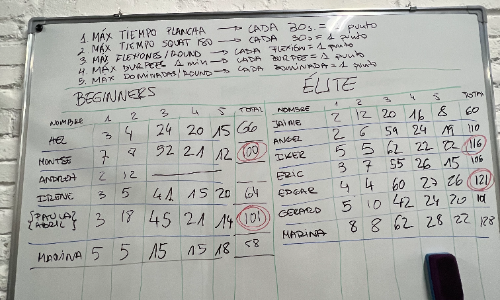 1 MÁX TIEMPO PLANCHA → CADA 30s = 1 punto
2 MÁX TIEMPO SQUAT ISO → CADA 30s = 1 punto
3 MAX FLEXIONES/ROUND → CADA FLEXION = 1 punto
4 MÁX BURPEES 1 min → CADA BURPEE = 1 punto
5 MAX DOMINADAS/ROUND → CADA DOMINADA = 1 punto
BEGINNERS
NOMBRE 1 2 3 4 5 TOTAL
3 4 24 20 15 66
MONTSE 7 8 52 21 12 100
ANDREA 2 12
IRENE 3 5 41 15 20 64
PAULA
3 18 45 21 14 101
MARINA 5 5 15 15 18 58
ÉLITE
NOMBRE 1 2 3 4 5 TOTAL
JAIME 2 12 20 16 8 60
ANGEL 2 6 59 24 19 110
IKER 5 5 62 22 22 116
ERIC 3 7 55 26 15 106
EDGAR 4 4 60 27 26 121
GERARD 5 10 42 24 20 101
MARINA 8 8 62 28 22 128